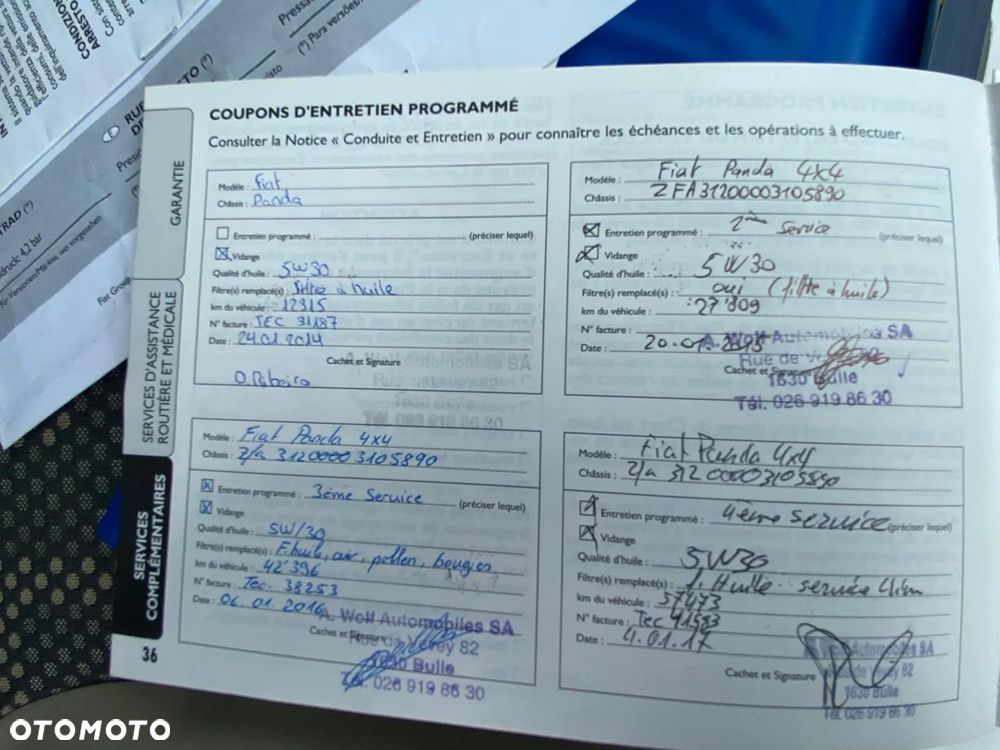 COUPONS D'ENTRETIEN PROGRAMMÉ
Consulter la Notice « Conduite et Entretien » pour connaître les échéances et les opérations à effectuer.
GARANTIE
SERVICES D'ASSISTANCE
ROUTIÈRE ET MÉDICALE
SERVICES
COMPLÉMENTAIRES
36
Modèle : Fiat
Châssis : Panda
Entretien programmé : (préciser lequel)
Vidange
Qualité d'huile : 5W30
Filtre(s) remplacé(s) : filtre à huile
km du véhicule : 12315
N° facture : TEC 31187
Date : 24.01.2014
Cachet et Signature
O. Ribeiro
Modèle : Fiat Panda 4x4
Châssis : ZFA31200003105890
Entretien programmé : 2ème Service (préciser lequel)
Vidange
Qualité d'huile : 5W30
Filtre(s) remplacé(s) : oui (filtre à huile)
km du véhicule : 27'809
N° facture :
Date : 20.
A. Wolf Automobiles SA
Rue de
Cachet et Signature
1630 Bulle
Tél. 026 919 86 30
Modèle : Fiat Panda 4x4
Châssis : Zfa 3120000 3105890
Entretien programmé : 3ème Service (préciser lequel)
Vidange
Qualité d'huile : 5W/30
Filtre(s) remplacé(s) : F. huile, air, pollen, bougies
km du véhicule : 42'396
N° facture : Tec. 38253
Date : 06.01.2016
A. Wolf Automobiles SA
Cachet et Signature
Rue de Vevey 82
1630 Bulle
Tél. 026 919 86 30
Modèle : Fiat Panda 4x4
Châssis : Zfa 312 0000 3105890
Entretien programmé : 4ème service (préciser lequel)
Vidange
Qualité d'huile : 5W30
Filtre(s) remplacé(s) : f. Huile service Clim
km du véhicule : 57473
N° facture : Tec 41583
Date : 4.01.17
A. Wolf Automobiles SA
Rue de Vevey 82
Cachet et Signature
1630 Bulle
Tél. 026 919 86 30
OTOMOTO